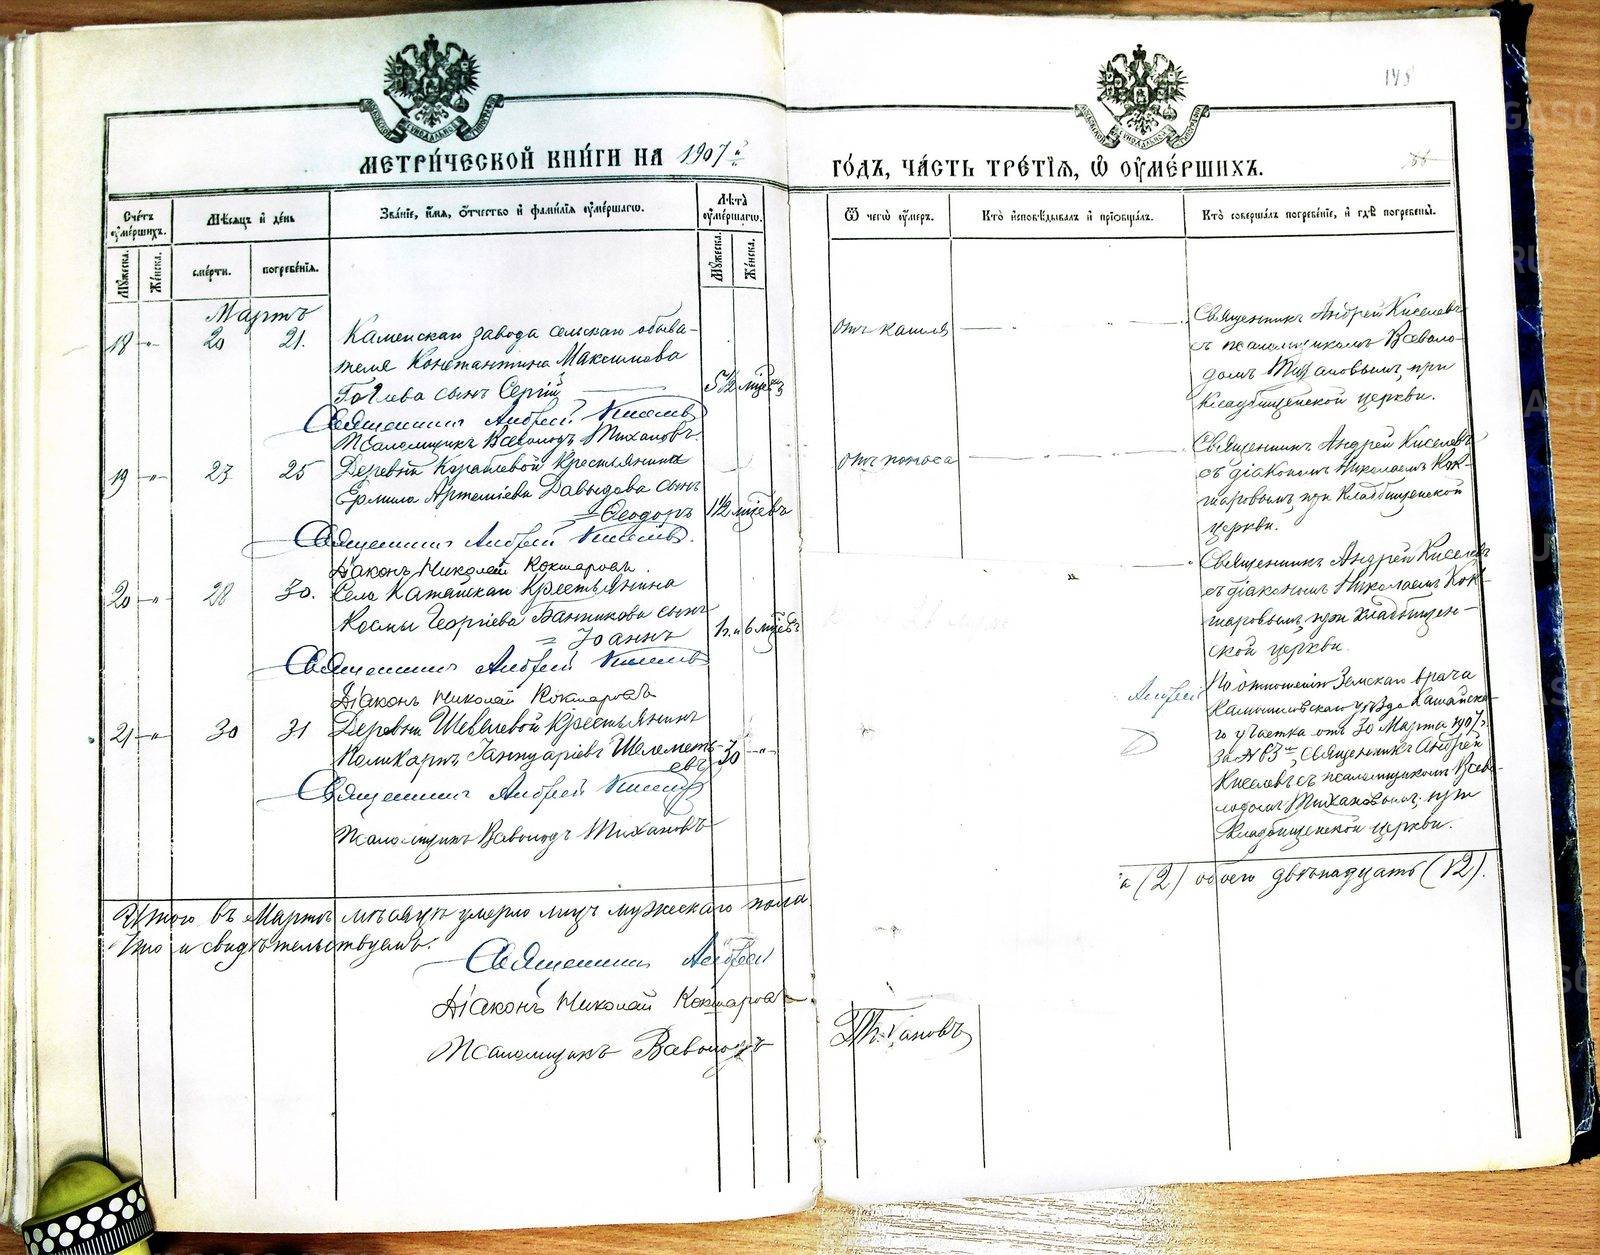 148
МЕТРИЧЕСКОЙ КНИГИ НА 1907 й
ГОДЪ, ЧАСТЬ ТРЕТІЯ, Ѿ ОУМЕРШИХЪ.
Счетъ оумершихъ.
Мѣсяцъ и день
Званіе, имя, отчество и фамилія оумершаго.
Лѣта оумершаго.
Ѿ чегѡ оумеръ.
Кто исповѣдывалъ и пріобщалъ.
Кто совершалъ погребеніе, и гдѣ погребены.
Мужеска.
Женска.
смерти.
погребенія.
Мужеска.
Женска.
Мартъ
18 -"- 20 21.
Каменскаго завода сельскаго обыва-
теля Константина Максимова
сынъ Сергій
5½ мѣсяц
отъ кашля
Священникъ Андрей Киселевъ
съ псаломщикомъ Всеволо-
домъ Тихановымъ, при
Кладбищенской церкви.
Священникъ Андрей Киселевъ
Псаломщикъ Всеволодъ Тихановъ.
19 -"- 23 25
Деревни Кораблевой крестьянина
Ермила Артеміева Давыдова сынъ
Ѳеодоръ
1½ мѣсяц
отъ поноса
Священникъ Андрей Киселевъ
съ діакономъ Николаемъ Кок-
шаровымъ, при Кладбищенской
церкви.
Священникъ Андрей Киселевъ.
Діаконъ Николай Кокшаровъ.
20 -"- 28 30.
Села Катайскаго крестьянина
Космы Георгіева Банникова сынъ
Іоаннъ
1 г. и 6 мѣсяц
Священникъ Андрей Киселевъ
съ діакономъ Николаемъ Кок-
шаровымъ, при Кладбищен-
ской церкви.
Священникъ Андрей Киселевъ
Діаконъ Николай Кокшаровъ
21 -"- 30 31
Деревни Шевелевой крестьянинъ
Поликарпъ Іаннуаріевъ Шелеметь-
евъ
30 -"-
Андрей
По отношенію Земскаго врача
Камышловскаго уѣзда Катайска-
го участка отъ 30 Марта 1907 г.
за № 83, Священникъ Андрей
Киселевъ съ псаломщикомъ Всев-
лодомъ Тихановымъ, при
Кладбищенской церкви.
Священникъ Андрей Киселевъ
Псаломщикъ Всеволодъ Тихановъ
Итого въ Мартѣ мѣсяцѣ умерло лицъ мужескаго пола
а (2) обоего двѣнадцать (12).
Что и свидѣтельствуемъ.
Священникъ Андрей
Діаконъ Николай Кокшаровъ
Псаломщикъ Всеволодъ
Тихановъ